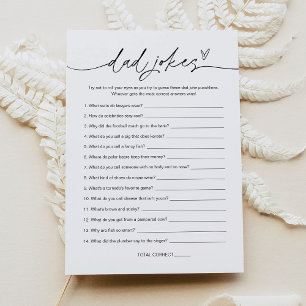 dad jokes
Try not to roll your eyes as you try to guess these dad joke punchlines.
Whoever gets the most correct answers wins!
1. What sort of
2. How do celebrities stay cool?
3. Why did the football coach go to the bank?
4. What do you call a pig that does karate?
5. What do you call a fancy fish?
6. Where do polar bears keep their money?
7. What do you call someone with no body and no nose?
8. What kind of shoes do
9. What's a tornado's favorite game?
10. What do you call cheese that isn't yours?
11. What's brown and sticky?
12. What do you get from a pampered cow?
13. Why are fish so smart?
14. What did the plumber say to the singer?
TOTAL CORRECT